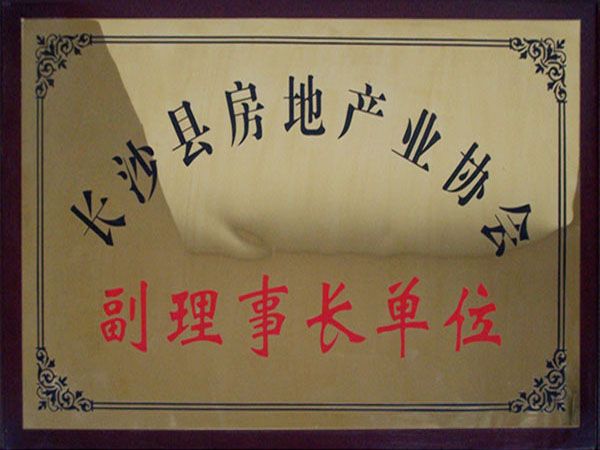 长沙县房地产业协会
副理事长单位